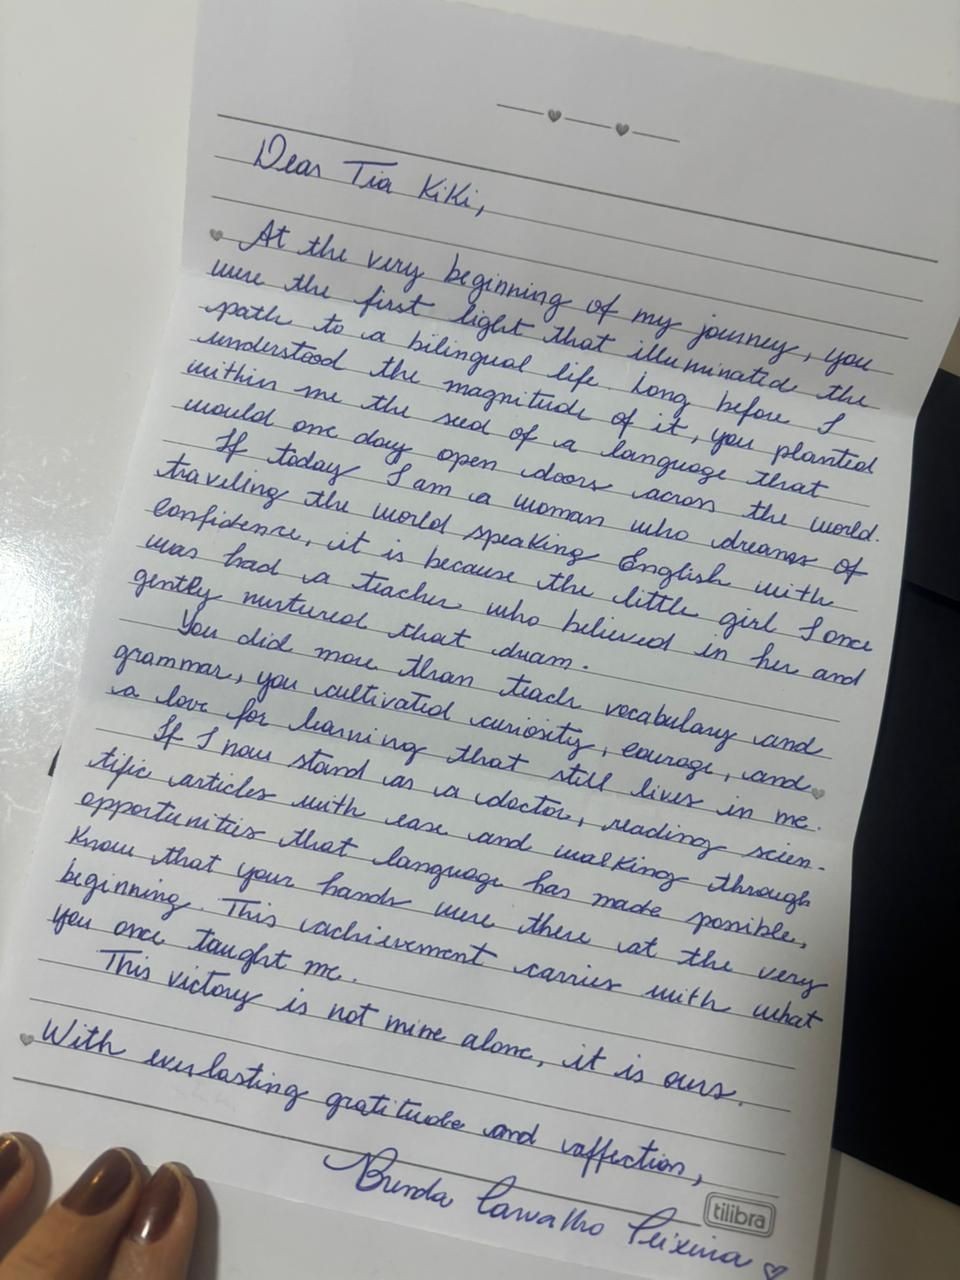 Dear Tia Kiki,
At the very beginning of my journey, you
were the first light that illuminated the
path to a bilingual life. Long before I
understood the magnitude of it, you planted
within me the seed of a language that
would one day open doors across the world.
If today I am a woman who dreams of
traveling the world speaking English with
confidence, it is because the little girl I once
was had a teacher who believed in her and
gently nurtured that dream.
You did more than teach vocabulary and
grammar, you cultivated curiosity, courage, and
a love for learning that still lives in me.
If I now stand as a doctor, reading scien-
tific articles with ease and walking through
opportunities that language has made possible,
know that your hands were there at the very
beginning. This achievement carries with what
you once taught me.
This victory is not mine alone, it is ours.
With everlasting gratitude and affection,
Brenda Carvalho Teixeira
tilibra